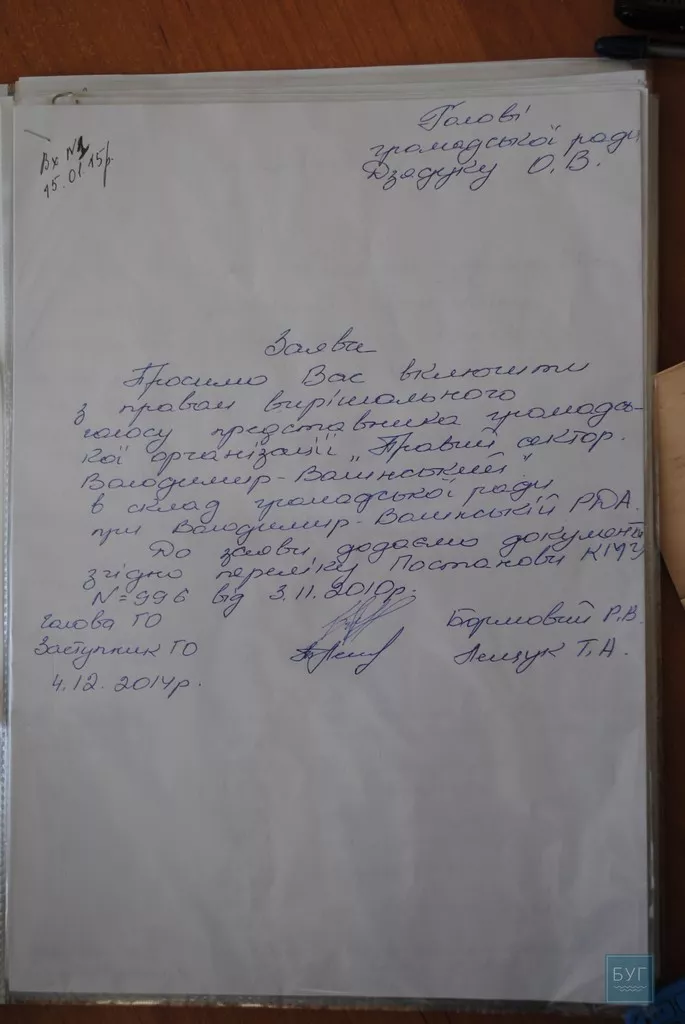 Вх №1
15.01.15р.
Голові
громадської ради
Дзядуку О.В.
Заява
Просимо Вас включити
з правом вирішального
голосу представника громадсь-
кої організації „Правий сектор.
Володимир-Волинський"
в склад громадської ради
при Володимир-Волинській РДА.
До заяви додаємо документи
згідно переліку Постанови КМУ
N=996 від 3.11.2010р.
Голова ГО Бормовий Р.В.
Заступник ГО Лещук Т.А.
4.12.2014р.
БУГ